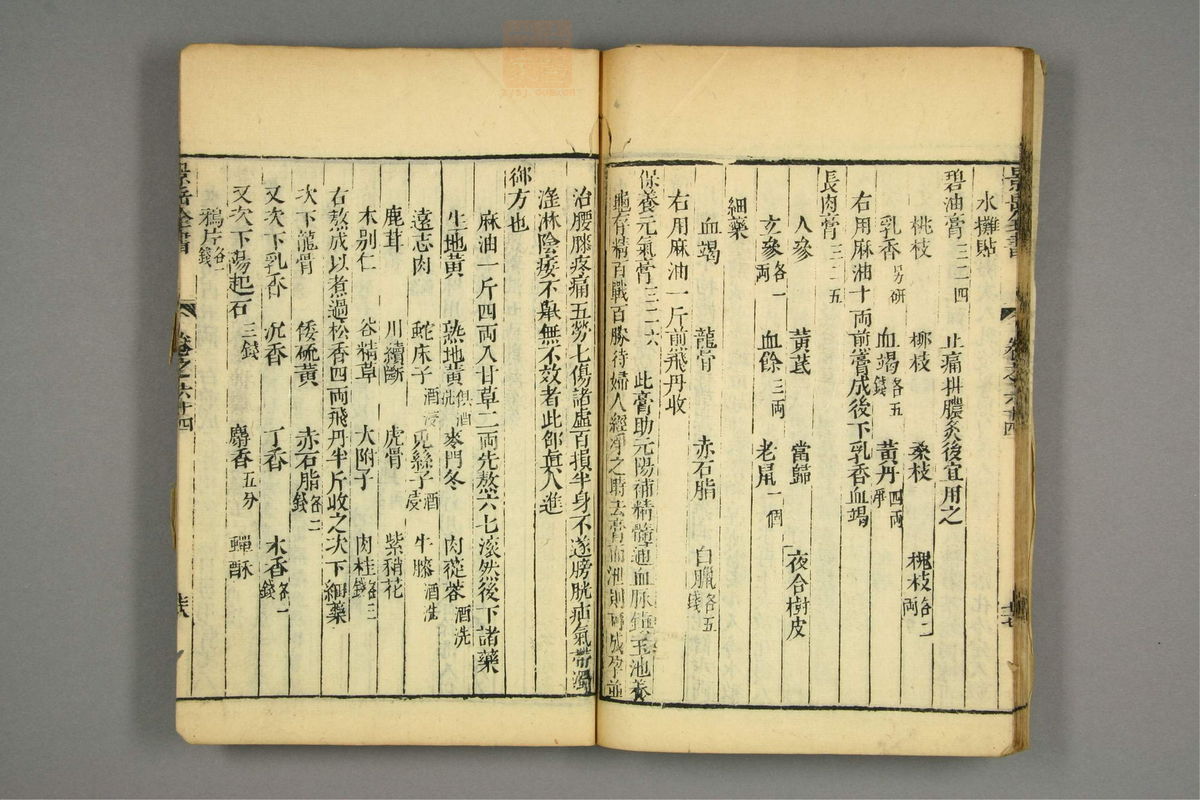 景岳全書 卷之六十四
水攤貼
碧油膏三二四 止痛排膿灸後宜用之
桃枝 柳枝 桑枝 槐枝各二兩
乳香另研 血竭各五錢 黃丹四兩淨
右用麻油十兩前膏成後下乳香血竭
長肉膏三二五
人參 黃芪 當歸 夜合樹皮
玄參各一兩 血餘三兩 老鼠一個
細藥
血竭 龍骨 赤石脂 白臘各五錢
右用麻油一斤前飛丹收
保養元氣膏三二六 此膏助元陽補精髓通血脉鎮玉池養
龜存精百戰百勝待婦人經淨之時去膏而泄則可成孕並
治腰膝疼痛五勞七傷諸虛百損半身不遂膀胱疝氣帶濁
淫淋陰痿不舉無不效者此邵眞人進
御方也
麻油一斤四兩入甘草二兩先熬六七滚然後下諸藥
生地黃 熟地黃俱酒洗 麥門冬 肉蓯蓉酒洗
遠志肉 蛇床子酒浸 兎絲子酒浸 牛膝酒洗
鹿茸 川續斷 虎骨 紫稍花
木別仁 谷精草 大附子 肉桂各三錢
右熬成以煮過松香四兩飛丹半斤收之次下細藥
次下龍骨 倭硫黃 赤石脂各二錢
又次下乳香 沉香 丁香 木香各一錢
又次下陽起石三錢 麝香五分 蟬酥
鴉片各一錢
景岳全書 卷之六十四